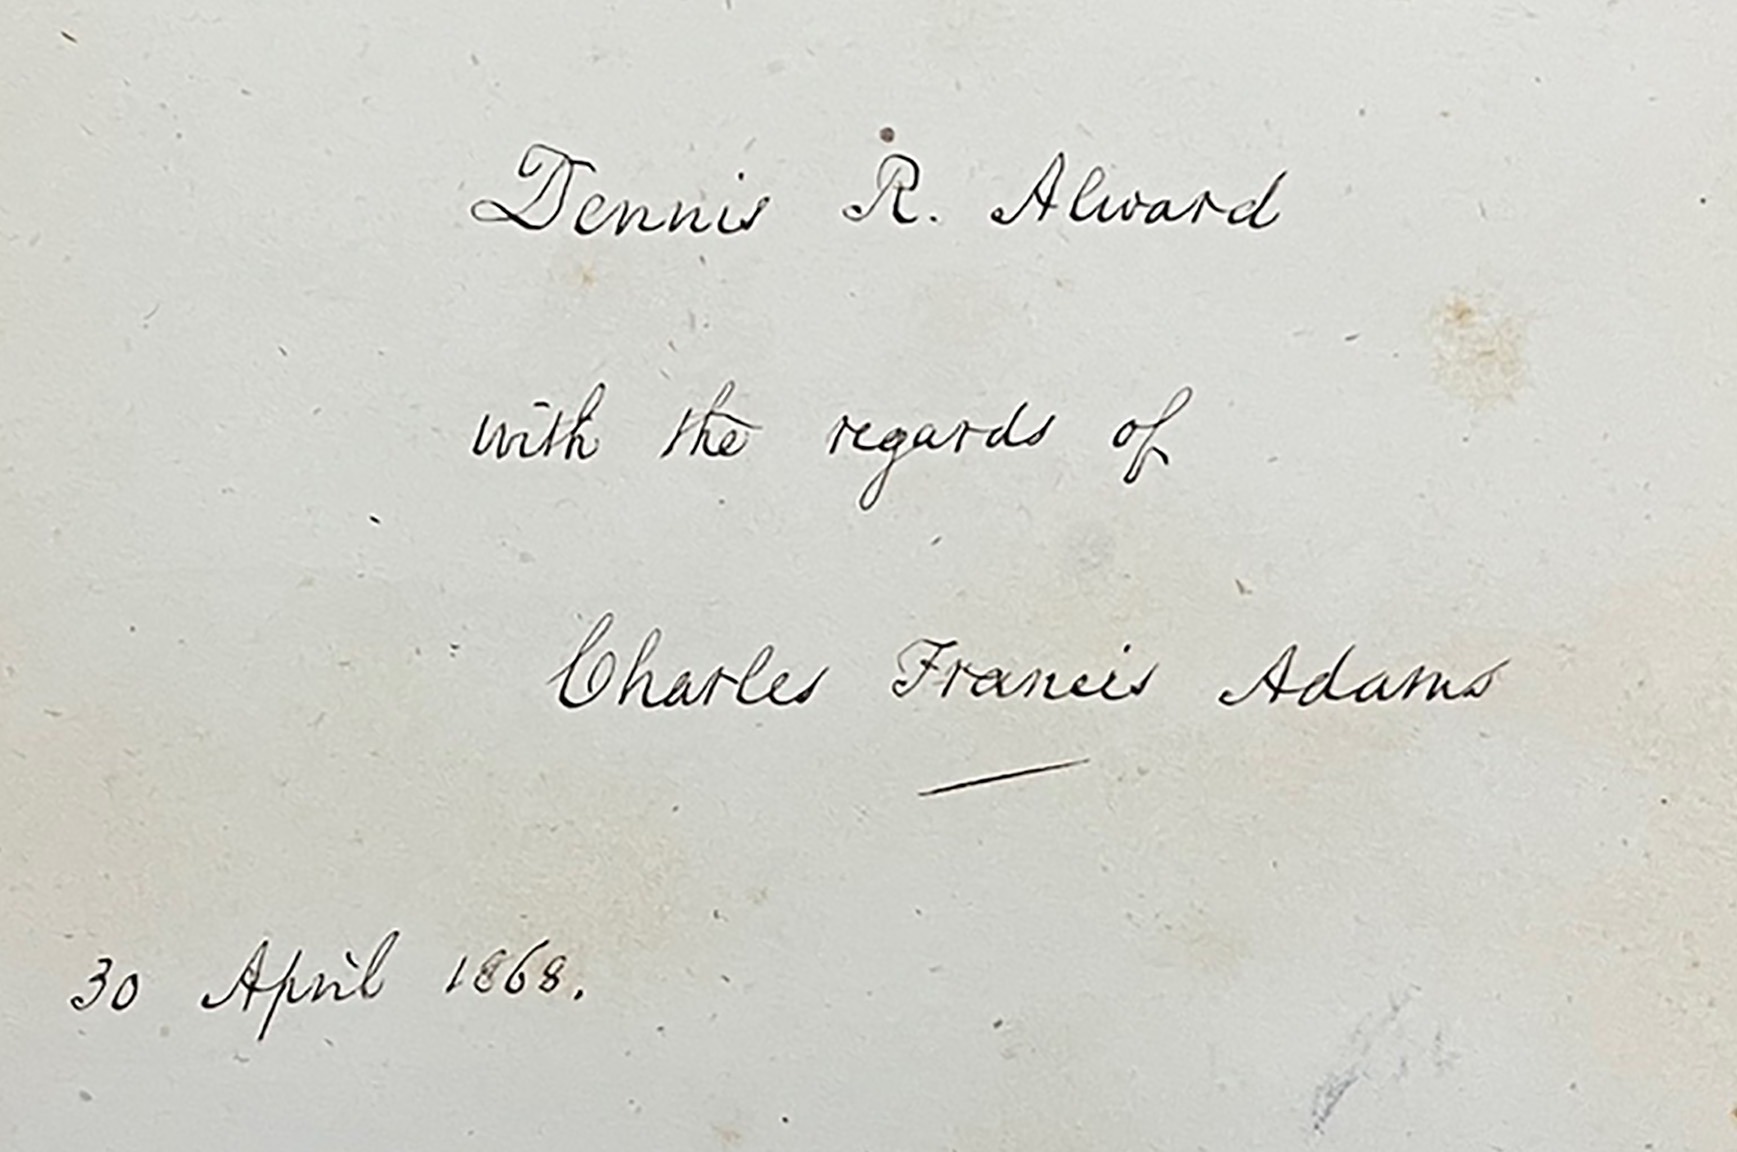 Dennis R. Alward
with the regards of
Charles Francis Adams
30 April 1868.